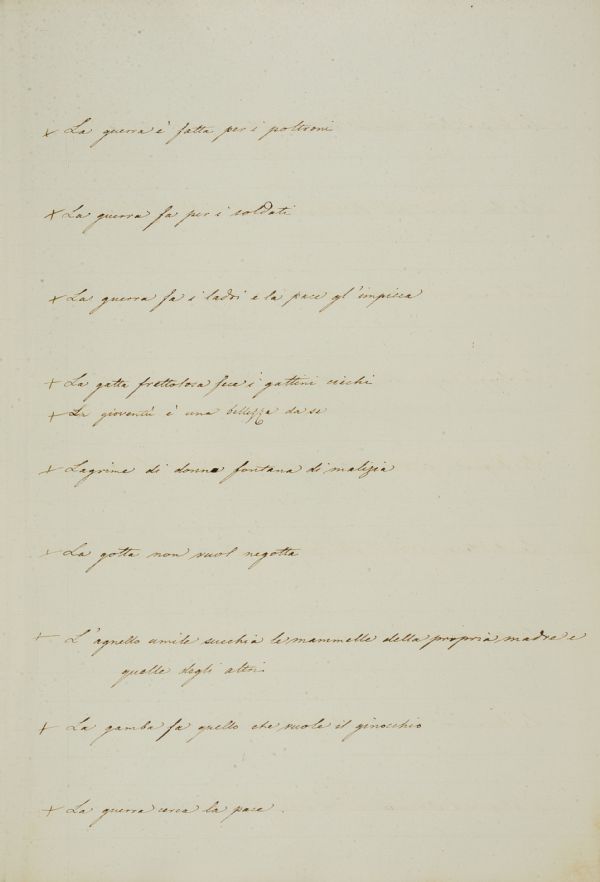 + La guerra è fatta per i poltroni
+ La guerra fa per i soldati
+ La guerra fa i ladri e la pace gl'impicca
+ La gatta frettolosa fece i gattini ciechi
+ La gioventù è una bellezza da se
+ Lagrime di donna fontana di malizia
+ La gotta non vuol negotta
+ L'agnello umile succhia le mammelle della propria madre e
quelle degli altri
+ La gamba fa quello che vuole il ginocchio
+ La guerra cerca la pace.